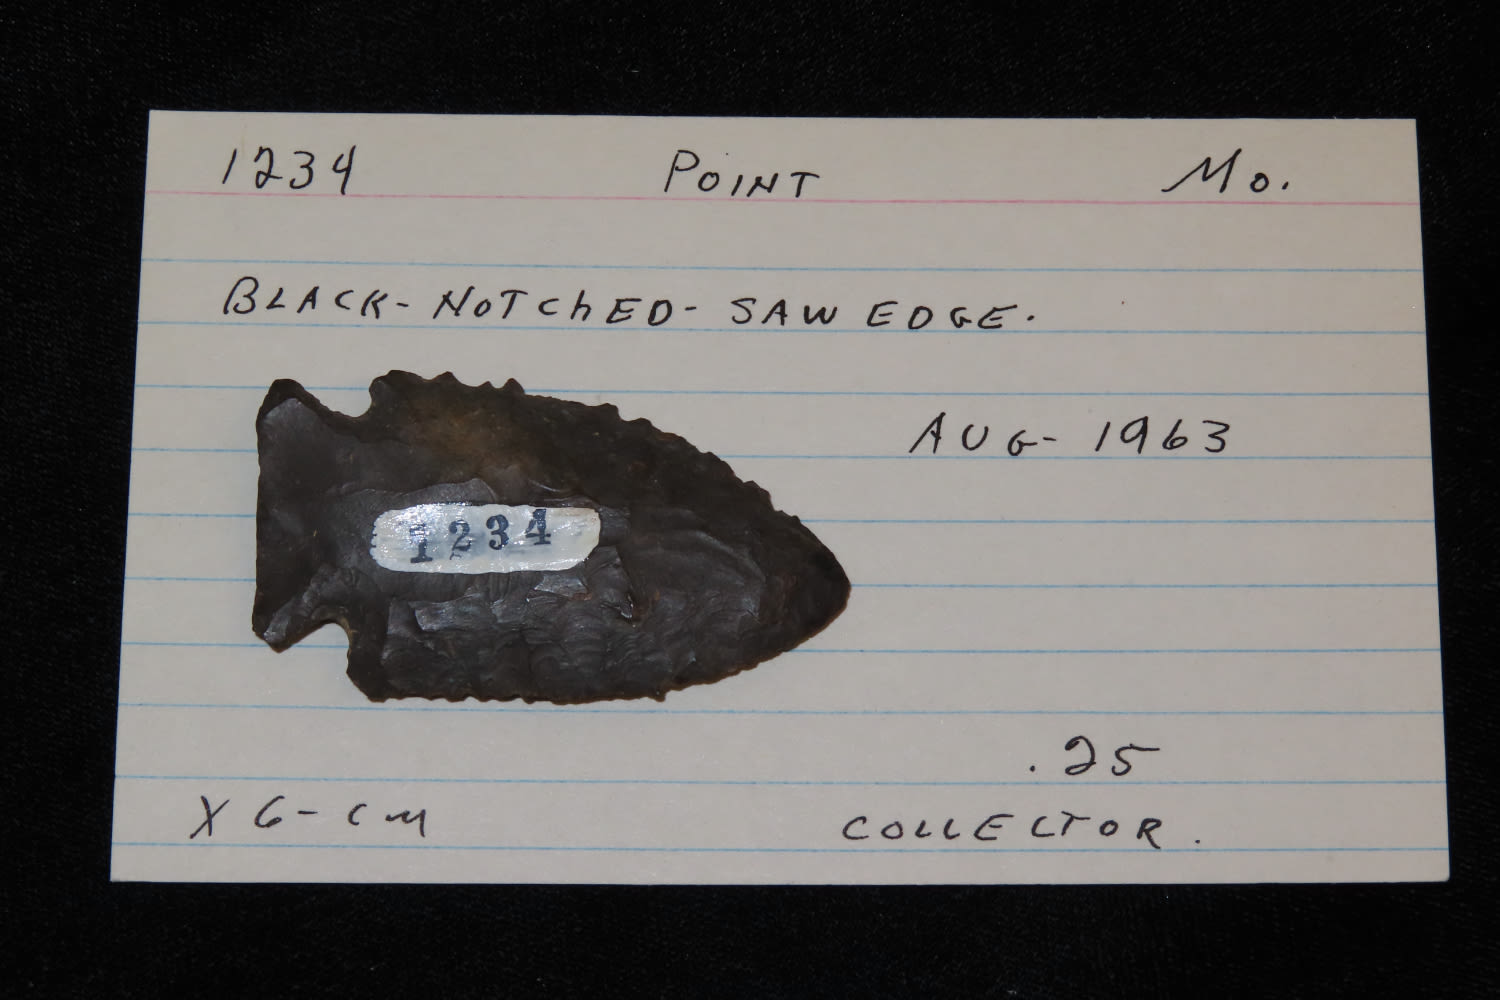 1234 POINT Mo.
BLACK-NOTChED-SAW EDGE.
AUG- 1963
1234
.25
X 6-cm COLLECTOR.